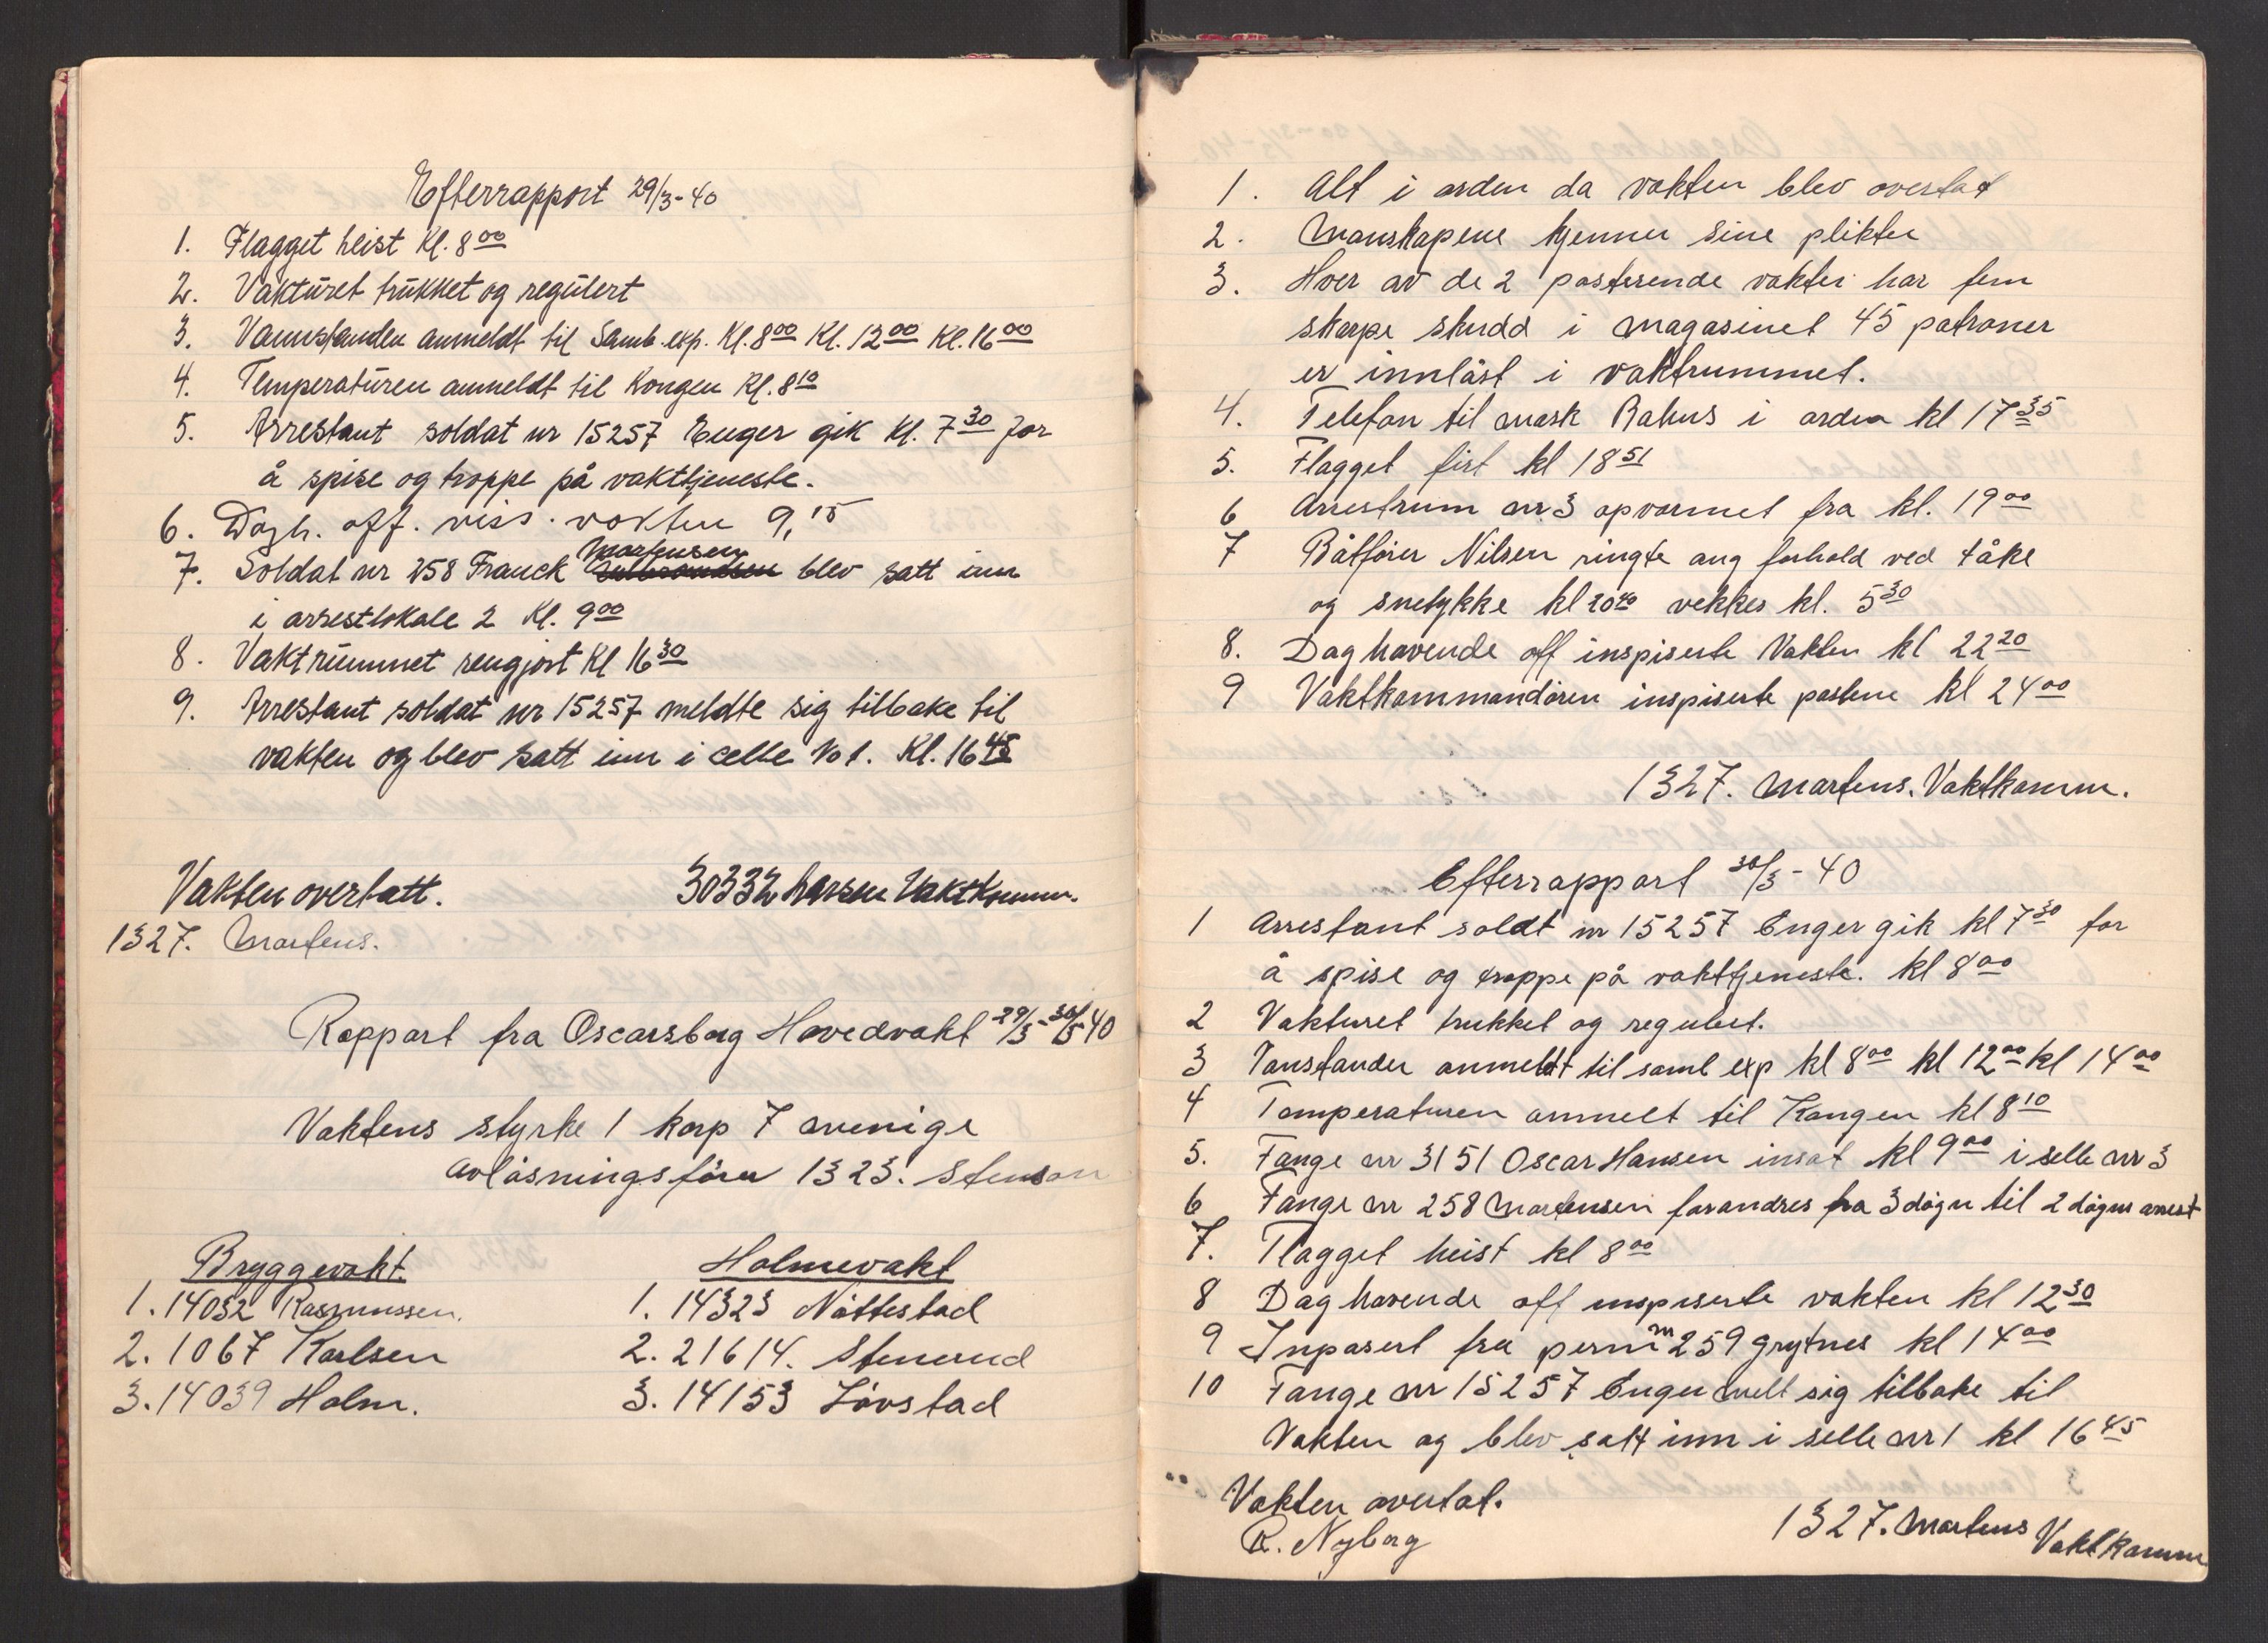 Efterrapport 29/3-40
1. Flagget heist Kl. 8 00
2. Vakturet trukket og regulert
3. Vannstanden anmeldt til Samb. exp. Kl. 8 00 Kl. 12 00 Kl. 16 00
4. Temperaturen anmeldt til Kongen Kl. 8 10
5. Arrestant soldat nr 15257 Enger gik Kl. 7 30 for
å spise og troppe på vakttjeneste.
6. Dagh. off. viss. vakten 9,15
Martensen
7. Soldat nr 258 Franck blev satt inn
i arrestlokale 2 Kl. 9 00
8. Vaktrummet rengjort Kl 16 30
9. Arrestant soldat nr 15257 meldte sig tilbake til
vakten og blev satt inn i celle No 1. Kl. 16 45
Vakten overtatt. 30332 Larsen Vaktkomm.
1327. Martens.
Rapport fra Oscarsborg Hovedvakt 29/3-30/3 40
Vaktens styrke 1 korp 7 menige
Avlåsningsförer 1323. Stenson
Bryggevakt.
1. 14032 Rasmussen.
2. 1067 Karlsen
3. 14039 Holm.
Holmevakt
1. 14323 Nättestad
2. 21614. Stenerud
3. 14153 Lövstad
1. Alt i orden da vakten blev overtat
2. Manskapene kjenner sine plikter
3. Hver av de 2 posterende vakter har fem
skarpe skudd i magasinet 45 patroner
er innlåst i vaktrummet.
4. Telefon til mask Rahus i orden kl 17 35
5. Flagget firt kl 18 51
6 Arrestrum nr 3 opvarmet fra kl. 19 00
7 Båtförer Nilsen ringte ang forhold ved tåke
og snetykke kl 20 40 vekkes kl. 5 30
8. Daghavende off inspiserte Vakten kl 22 20
9 Vaktkommandören inspiserte postene kl 24 00
1327. Martens. Vaktkomm.
Efterrapport 30/3-40
1 Arrestant soldt nr 15257 Enger gik kl 7 30 for
å spise og troppe på vakttjeneste. kl 8 00
2 Vakturet trukket og regulert.
3 Vanstanden anmeldt til samb exp kl 8 00 kl 12 00 kl 14 00
4 Temperaturen anmelt til Kongen kl 8 10
5. Fange nr 3151 Oscar Hansen insat kl 9 00 i selle nr 3
6 Fange nr 258 Martensen forandres fra 3 dögn til 2 dögns arrest
7. Flagget heist kl 8 00
8 Daghavende off inspiserte vakten kl 12 30
9 Inpasert fra perm nr 259 Grytnes kl 14 00
10 Fange nr 15257 Enger melt sig tilbake til
Vakten og blev satt inn i selle nr 1 kl 16 45
Vakten overtat.
R. Nyborg
1327. Martens Vaktkomm